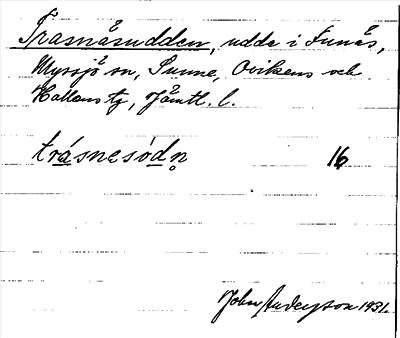 Trasnäsudden, udde i Funäs,
Myssjö sn, Sunne, Ovikens och
Hallens tg, Jämtl. l.
trásnesódn̥ 16
John Andersson 1931.